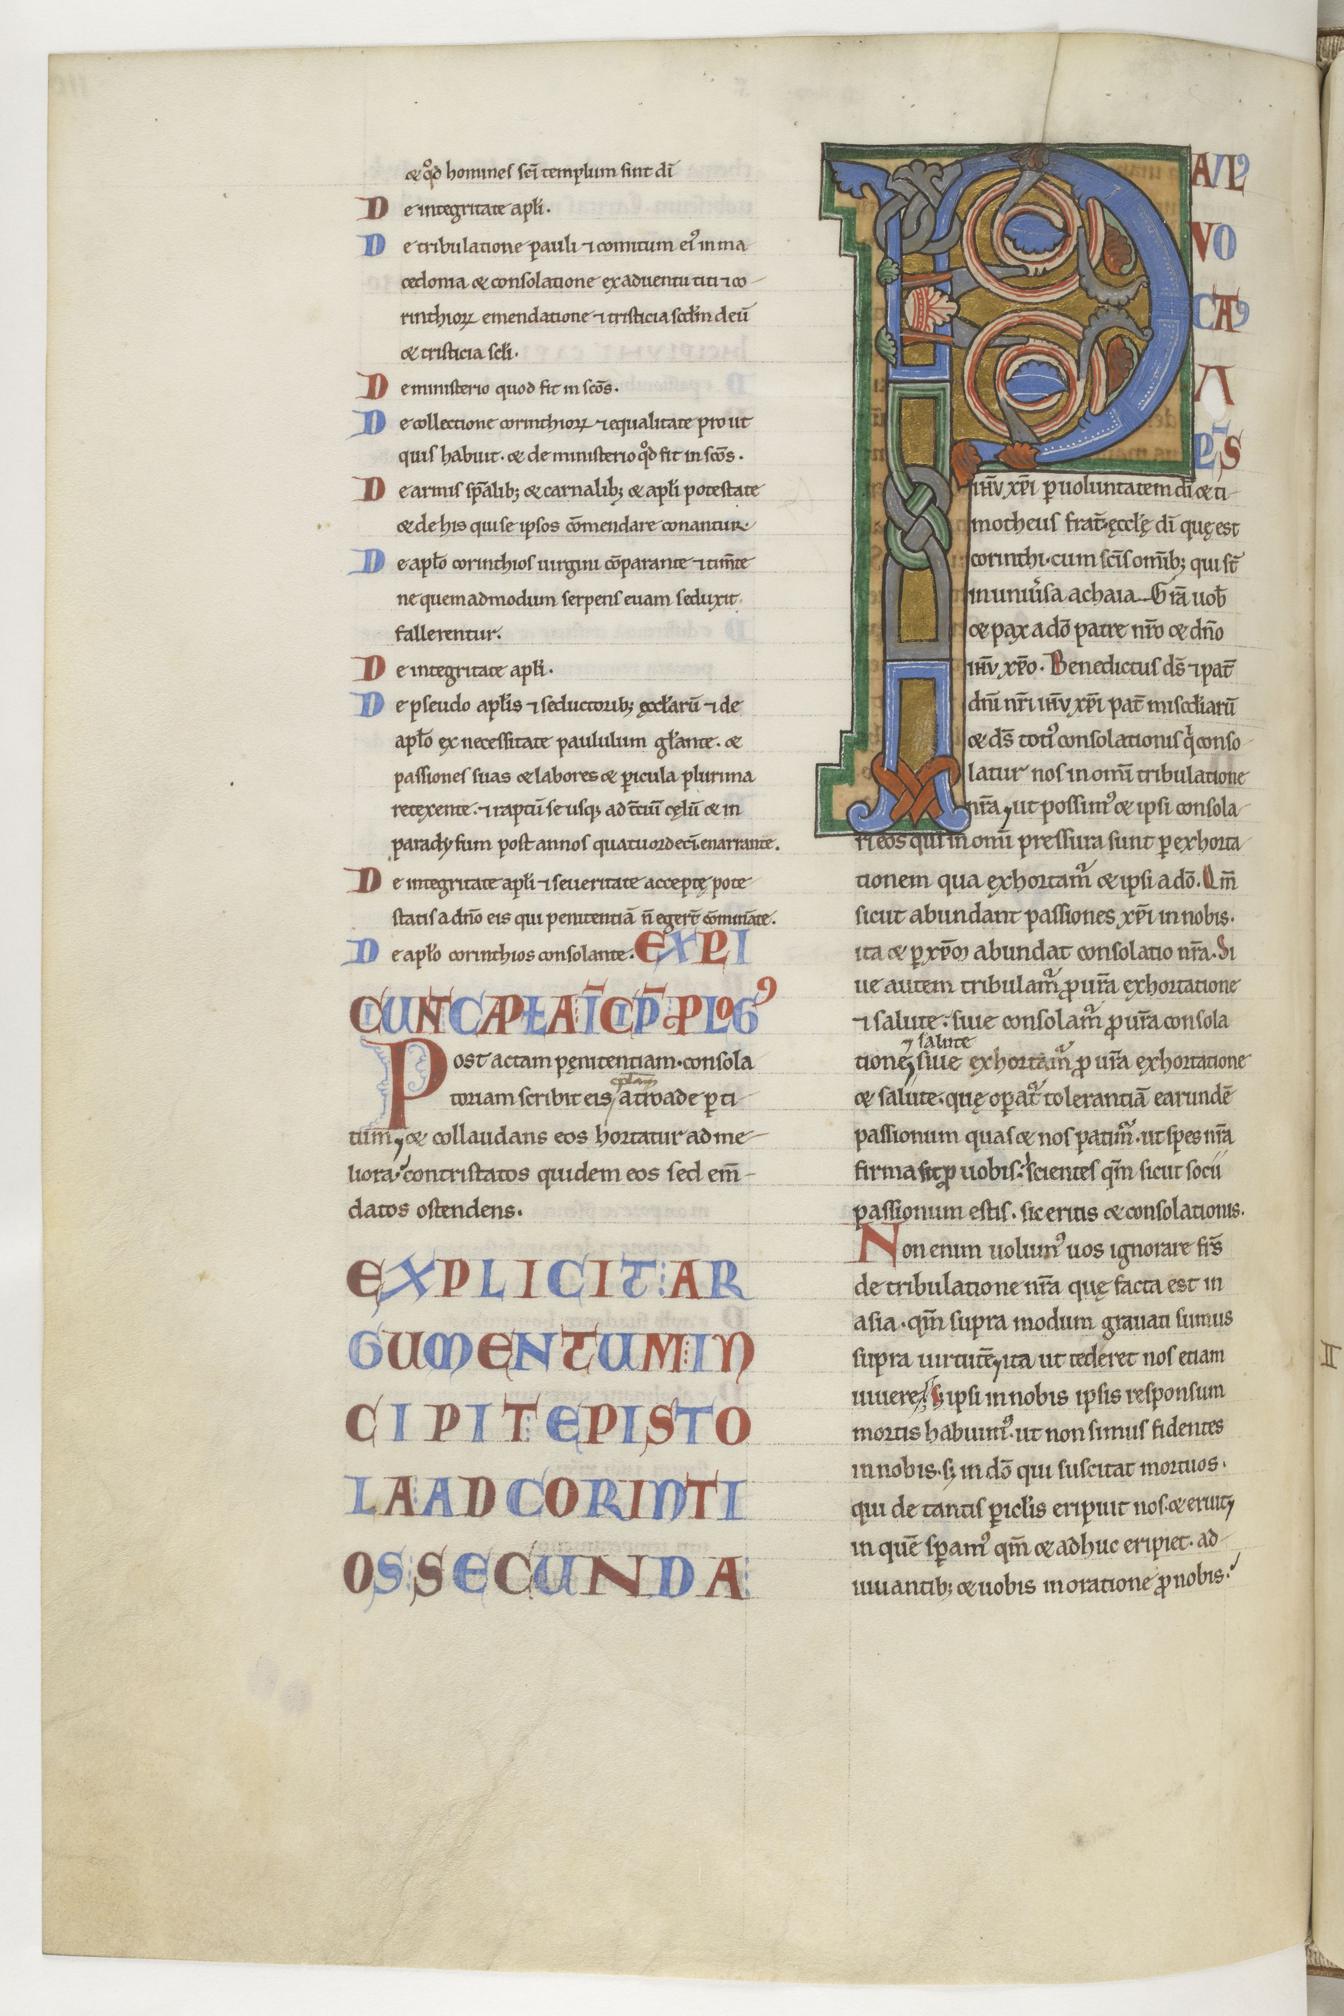 & q̊d homines sc̄i templum sint dī
De integritate apłi.
De tribulatione pauli ⁊ comitum ei᾿ in ma
cedonia & consolatione ex aduentu titi ⁊ co
rinthioꝝ emendatione ⁊ tristicia scd̄m deū
& tristicia scłi.
De ministerio quod fit in scōs.
De collectione corinthioꝝ ⁊ equalitate pro ut
quis habuit. & de ministerio q̊d fit in scōs.
De armis sp̄alib; & carnalib; & apłi potestate
& de his qui se ipsos cōmendare conantur.
De apło corinthios uirgini cōparante ⁊ tim̄te
ne quemadmodum serpens euam seduxit
fallerentur.
De integritate apłi.
De pseudo apłis ⁊ seductorib; ęccłarū ⁊ de
apło ex necessitate paululum gło̅ante. &
passiones suas & labores & pericula plurima
retexente. ⁊ raptū se usq; ad t̄ciū cęlū & in
paradysum post annos quatuordecī enarrante.
De integritate apłi ⁊ seueritate acceptę pote
statis a dn̄o eis qui penitentiā n̄ eger̄t cōmināte.
De apło corinthios consolante. EXPLI
CIUNT CAPŁA. ĪCIP̄ PLOG᾿
Post actam pęnitentiam. consola
toriam scribit eis ep̄lam a troade ꝑ ti
tum, & collaudans eos hortatur ad me
liora. contristatos quidem eos sed em̄
datos ostendens.
EXPLICIT: AR
GUMENTUM: IN
CIPIT: EPISTO
LA: AD CORINTI
OS: SECUNDA:
PAUL᾿
VO
CAT᾿
A
PL̄S
iħv xp̄i ꝑ uoluntatem dī & ti
motheus frat̄. ęcclę dī quę est
corinthi. cum sc̄is omīb; qui s̄t
in uniu̾sa achaia. Gr̄a uob̄
& pax a dō patre nr̄o & dn̄o
iħv xp̄o. Benedictus ds̄ ⁊ pat̄
dn̄i nr̄i iħv xp̄i pat̄ mis̄cdiarū
& ds̄ toti᾿ consolationis q̇ conso
latur nos in omī tribulatione
nr̄a, ut possim᾿ & ipsi consola
ri eos qui in omī pressura sunt ꝑ exhorta
tionem qua exhortam̾ & ipsi a dō. Qm̄
sicut abundant passiones xp̄i in nobis.
ita & ꝑ xp̄m abundat consolatio nr̄a. Si
ue autem tribulam̾ ꝓ ur̄a exhortatione
⁊ salute. siue consolam̾ ꝓ ur̄a consola
tione, ⁊ salute siue exhortam̾ ꝓ ur̄a exhortatione
& salute. quę opat̾ tolerantiā earundē
passionum quas & nos patim̾. ut spes nr̄a
firma sit ꝓ uobis. scientes qm̄ sicut socii
passionum estis. sic eritis & consolationis.
Non enim uolum᾿ uos ignorare frs̄
de tribulatione nr̄a quę facta est in
asia. qm̄ supra modum grauati sumus
supra uirtutē, ita ut tederet nos etiam
uiuere. S; ipsi in nobis ipsis responsum
mortis habuim᾿. ut non simus fidentes
in nobis. s; in dō qui suscitat mortuos.
qui de tantis ꝑiclis eripuit nos. & eruit,
in quē speram᾿ qm̄ & adhuc eripiet. ad
iuuantib; & uobis in oratione ꝓ nobis.
II